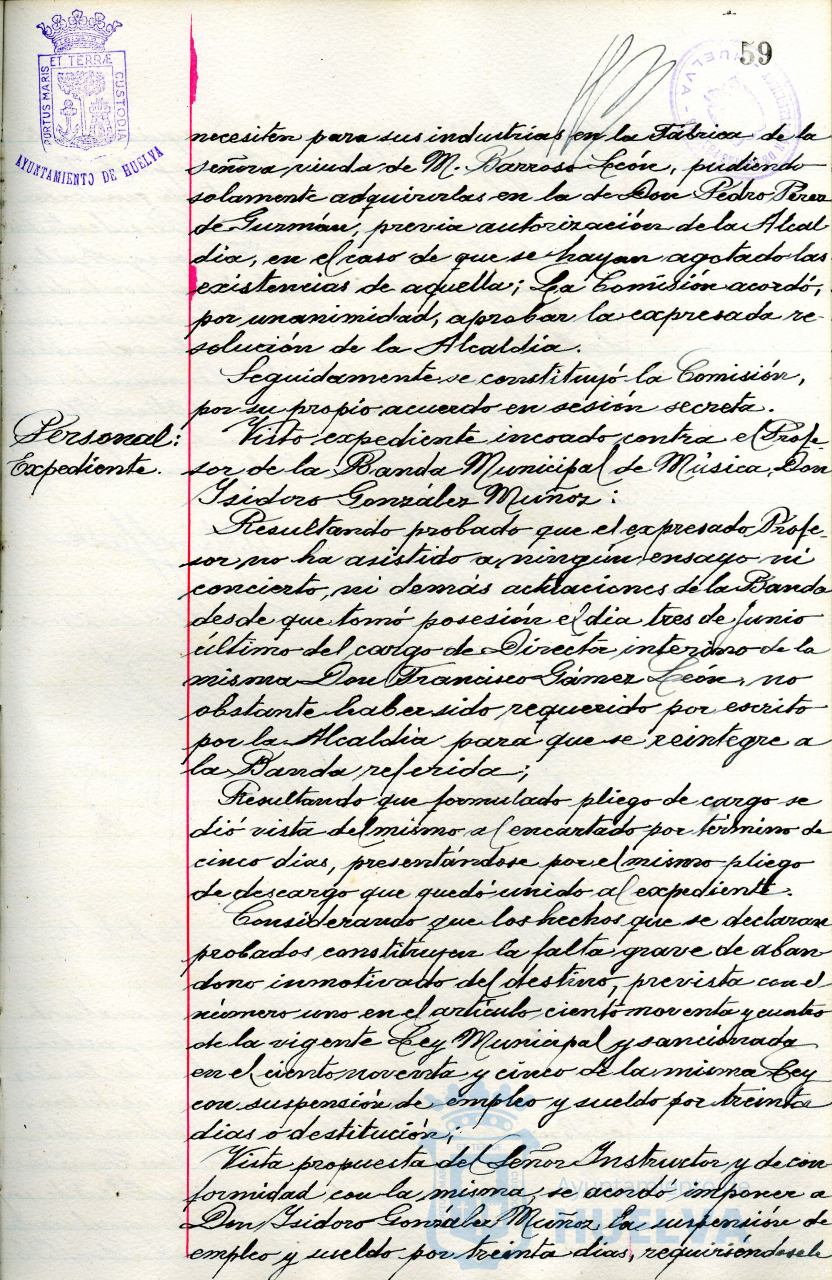 59
PORTUS MARIS ET TERRÆ CUSTODIA
AYUNTAMIENTO DE HUELVA
necesiten para sus industrias en la Fábrica de la
señora viuda de M. Barroso León, pudiendo
solamente adquirirlas en la de Don Pedro Pérez
de Guzmán, previa autorización de la Alcal-
dia, en el caso de que se hayan agotado las
existencias de aquella; La Comisión acordó,
por unanimidad, aprobar la expresada re-
solución de la Alcaldía.
Seguidamente se constituyó la Comisión,
por su propio acuerdo en sesión secreta.
Personal:
Expediente.
Visto expediente incoado contra el Profe-
sor de la Banda Municipal de Música, Don
Isidoro González Muñoz:
Resultando probado que el expresado Profe-
sor no ha asistido a ningún ensayo ni
concierto, ni demás actuaciones de la Banda
desde que tomó posesión el dia tres de Junio
último del cargo de Directa interino de la
misma Don Francisco Gámez León, no
obstante haber sido requerido por escrito
por la Alcaldia para que se reintegre a
la Banda referida;
Resultando que formulado pliego de cargo se
dió vista del mismo al encartado por término de
cinco dias, presentándose por el mismo pliego
de descargo que quedó unido al expediente.
Considerando que los hechos que se declaran
probados constituyen la falta grave de aban
dono inmotivado del destino, prevista con el
número uno en el artículo ciento noventa y cuatro
de la vigente Ley Municipal y sancionada
en el ciento noventa y cinco de la misma Ley
con suspensión de empleo y sueldo por treinta
dias o destitución;
Vista propuesta del Señor Instructor y de con-
formidad con la misma, se acordó imponer a
Don Isidoro González Muñoz la suspensión de
empleo y sueldo por treinta dias, requiriéndosele
Ayuntamiento de
HUELVA